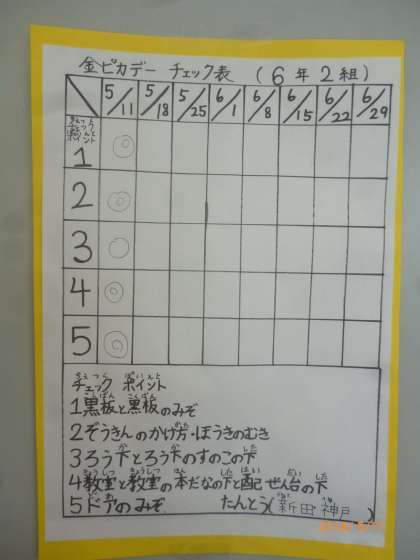 金ピカデー チェック表 (6年2組)
5/11 5/18 5/25 6/1 6/8 6/15 6/22 6/29
1 ◎
2 ◎
3 ○
4 ◎
5 ◎
チェック ポイント
1黒板と黒板のみぞ
2ぞうきんのかけ方・ほうきのむき
3ろう下とろう下のすのこの下
4教室と教室の本だなの下と配ぜん台の下
5ドアのみぞ たんとう(新田・神戸)